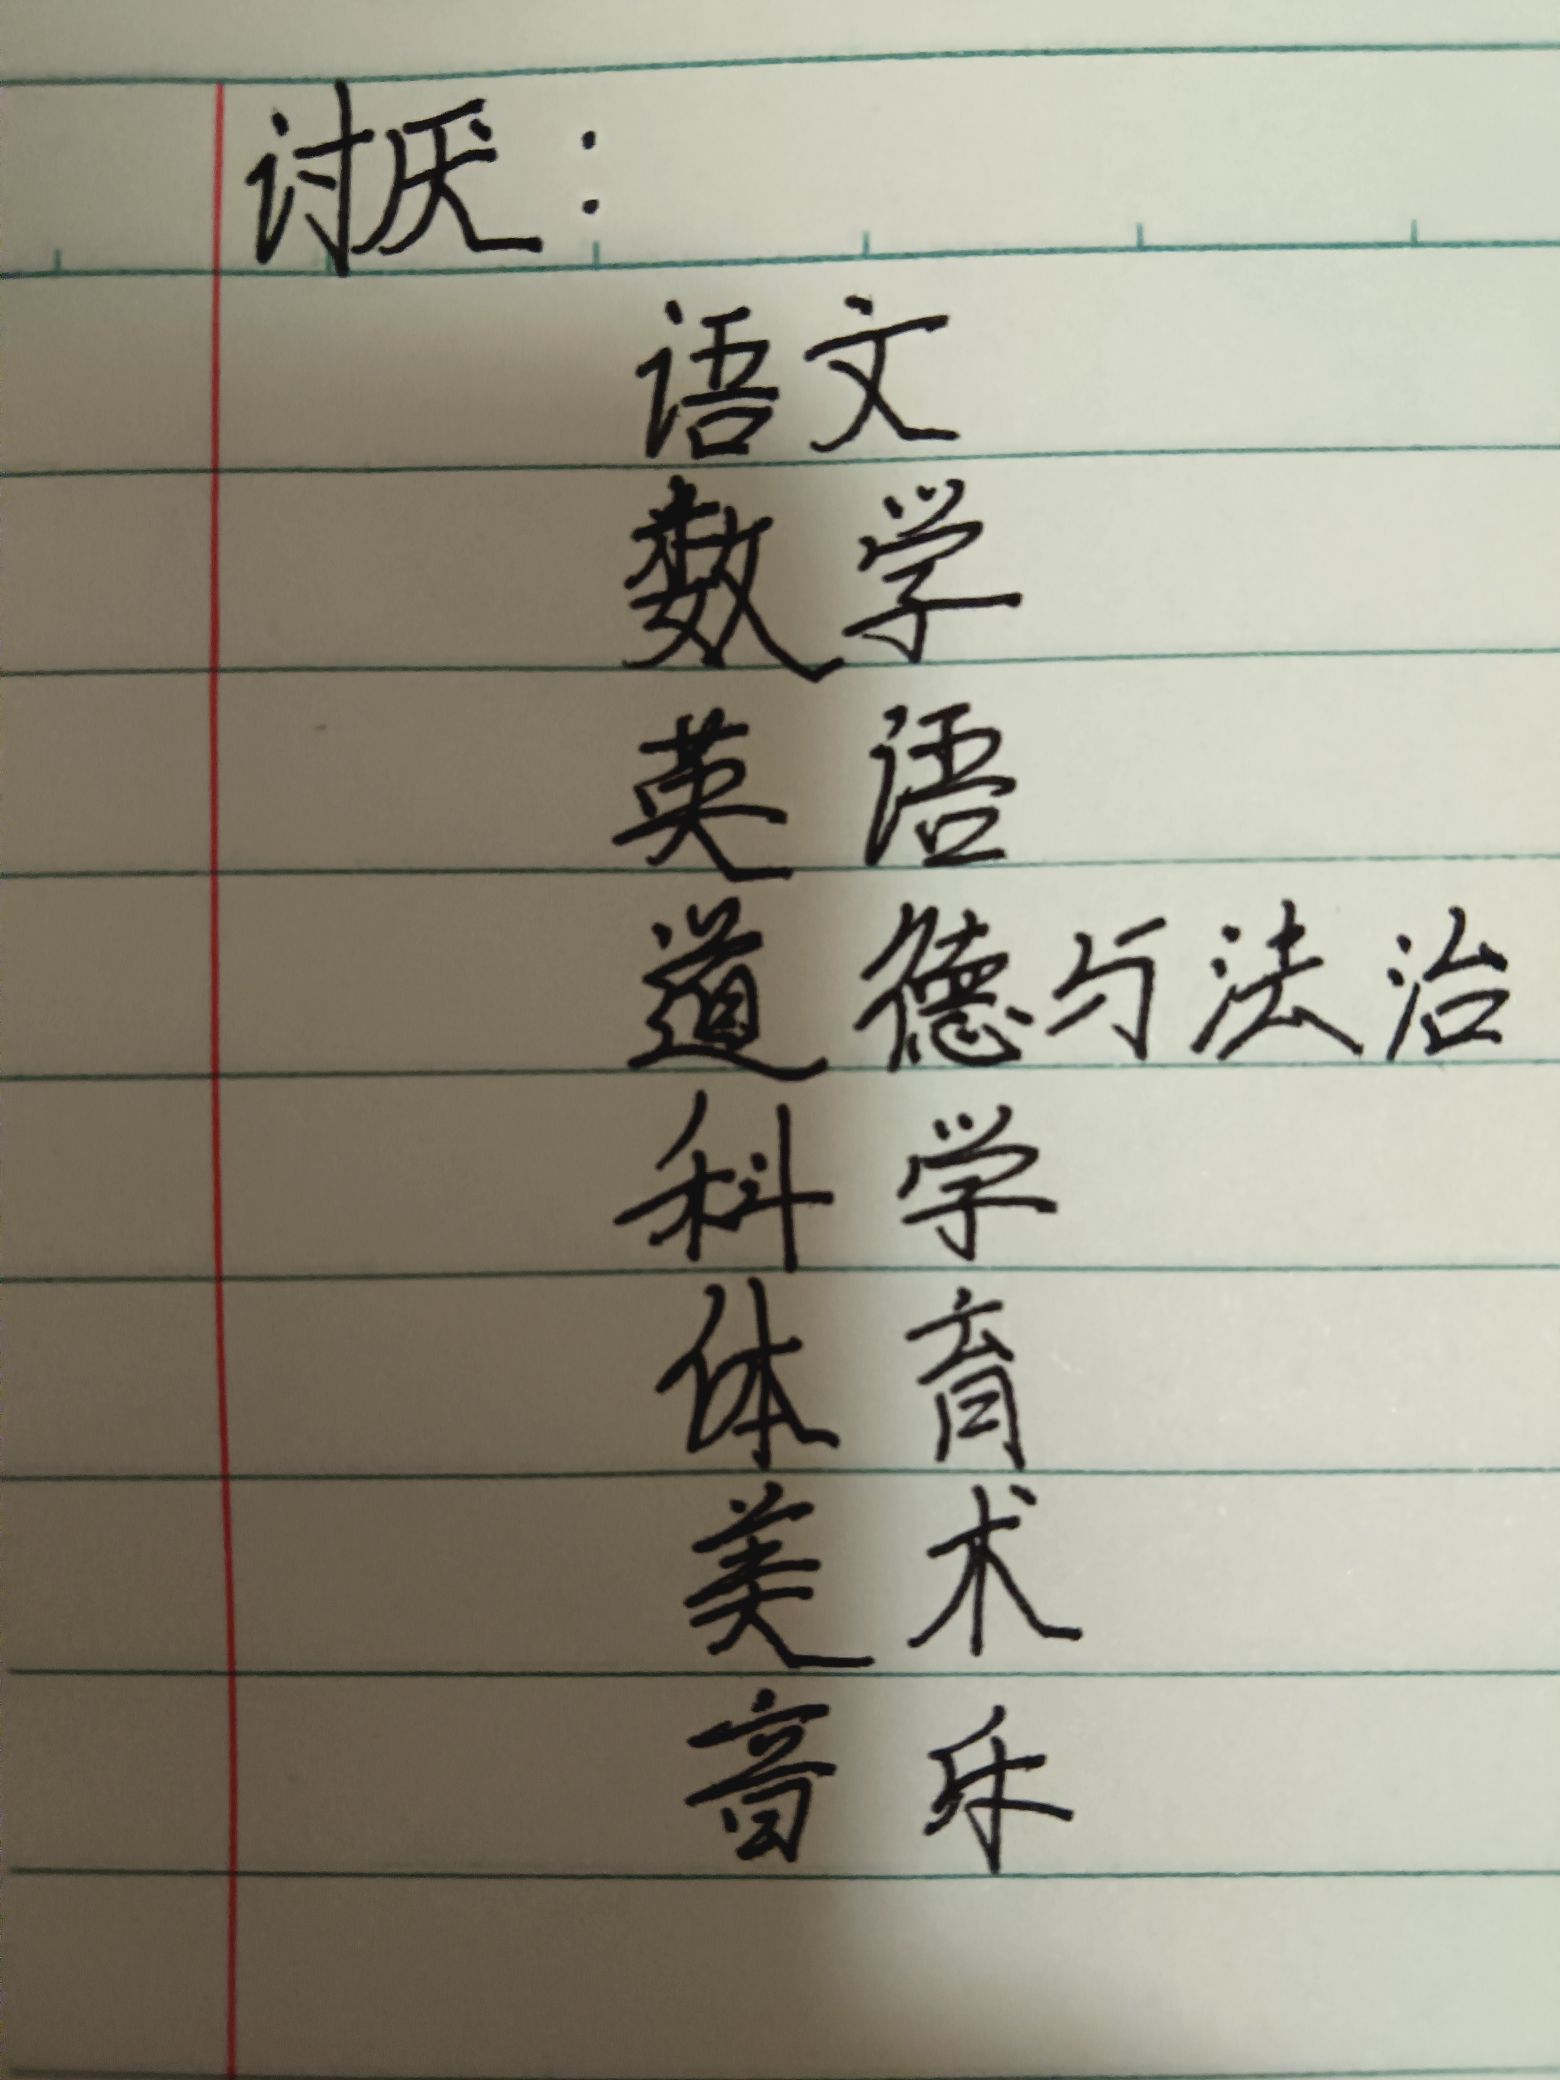 讨厌：
语文
数学
英语
道德与法治
科学
体育
美术
音乐